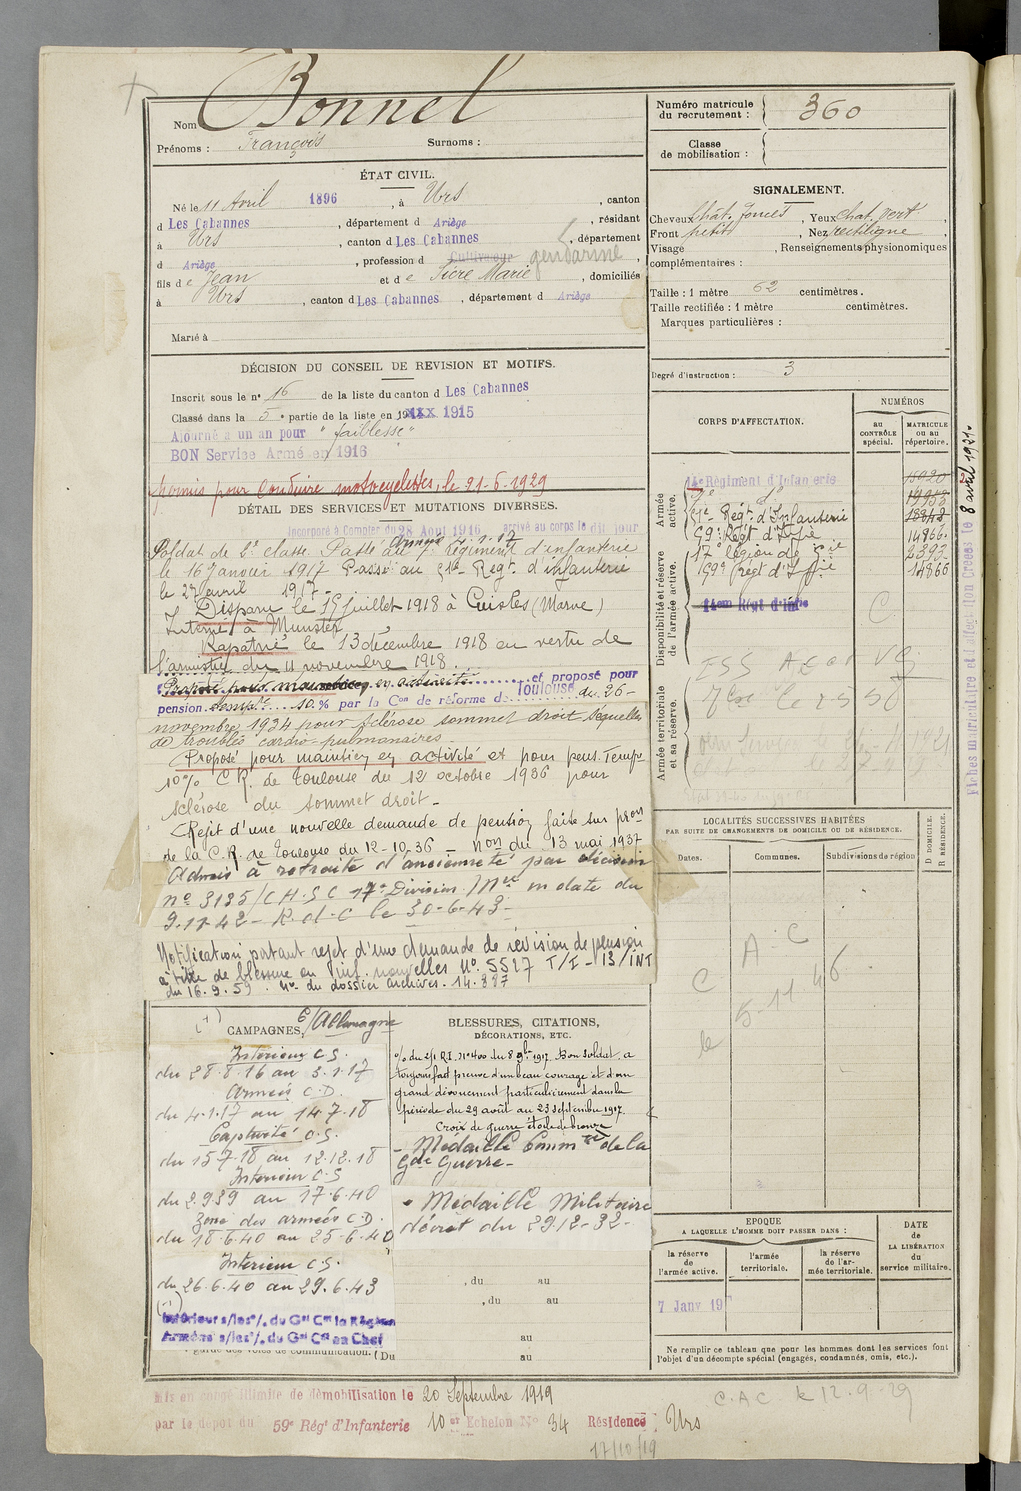 Nom Bonnel
Prénoms : François Surnoms :
Numéro matricule du recrutement : 360
Classe de mobilisation :
ÉTAT CIVIL.
Né le 11 Avril 1896, à Urs, canton
d Les Cabannes, département d Ariège, résidant
à Urs, canton d Les Cabannes, département
d Ariège, profession d Cultivateur gendarme,
fils de Jean et de Sicre Marie, domiciliés
à Urs, canton d Les Cabannes, département d Ariège
Marié à
SIGNALEMENT.
Cheveux chât. foncés, Yeux chat. vert,
Front petit, Nez rectiligne,
Visage , Renseignements physionomiques
complémentaires :
Taille : 1 mètre 62 centimètres.
Taille rectifiée : 1 mètre centimètres.
Marques particulières :
Degré d'instruction : 3
DÉCISION DU CONSEIL DE REVISION ET MOTIFS.
Inscrit sous le nº 16 de la liste du canton d Les Cabannes
Classé dans la 5e partie de la liste en 19 1915
Ajourné à un an pour "faiblesse"
BON Service Armé en 1916
permis pour conduire motocyclettes, le 21-6-1929
DÉTAIL DES SERVICES ET MUTATIONS DIVERSES.
Incorporé à Compter du 28 Aout 1916 arrivé au corps le dit jour
Armées 4.1.17
Soldat de 2e classe. Passé au 7e régiment d'infanterie
le 16 Janvier 1917 Passé au 51e Regt. d'infanterie
le 27 avril 1917.
Disparu le 15 juillet 1918 à Cuisles (Marne)
Interné à Munster
Rapatrié le 13 décembre 1918 en vertu de
l'armistice du 11 novembre 1918.
Proposé pour maintien en activité et proposé pour
pension temp. 10 % par la Con de réforme de Toulouse du 26-
novembre 1934 pour sclérose sommet droit séquelles
de troubles cardio-pulmonaires.
Proposé pour maintien en activité et pour pens. Temp.
10% C.R. de Toulouse du 12 octobre 1936 pour
sclérose du sommet droit.
Rejet d'une nouvelle demande de pension faite sur pron
de la C.R. de Toulouse du 12-10-36 — Non du 13 mai 1937
Admis à retraite d'ancienneté par décision
nº 3185/CH.SC 17e Division Mre en date du
9.11-42 - R.d.C le 30-6-43-
Notification portant rejet d'une demande de révision de pension
à titre de blessure ou inf. nouvelles Nº 5527 T/I - 13/INT
du 16.9.59. Nº du dossier archives. 14.387
CORPS D'AFFECTATION.
NUMÉROS
au CONTRÔLE spécial.
MATRICULE ou au répertoire.
Armée active.
Régiment d'Infanterie
7e dº
51e Regt. d'Infanterie
59e Regt d'Infie 14866
17e légion de Gie 2392
159e Régt d'Infie 14866
14em Régt d'Infie
C.
Disponibilité et réserve de l'armée active.
Armée territoriale et sa réserve.
Fiches matricule et d'affectation Créées le 8 avril 1921.
LOCALITÉS SUCCESSIVES HABITÉES
PAR SUITE DE CHANGEMENTS DE DOMICILE OU DE RÉSIDENCE.
Dates. Communes. Subdivisions de région
D DOMICILE. R RÉSIDENCE.
A C
C 5-11 46
le
CAMPAGNES, C/Allemagne
Intérieur C.S.
du 28.8.16 au 3.1.17
Armées C.D.
du 4.1.17 au 14.7.18
Captivité C.S.
du 15.7.18 au 12.12.18
Intérieur C.S
du 2.9.39 au 17.6.40
Zone des armées C.D.
du 18.6.40 au 25.6.40
Intérieur C.S.
du 26.6.40 au 29.6.43
Intérieur s/les o/. du Gal Ct la Région
Armées s/les o/. du Gal Ct en Chef
garde des voies de communication. (Du au
BLESSURES, CITATIONS,
DÉCORATIONS, ETC.
o/o du 21 R.I. Nº 400 du 8 9bre 1917. Bon soldat, a
toujours fait preuve d'un beau courage et d'un
grand dévouement particulièrement dans la
période du 29 août au 23 septembre 1917.
Croix de guerre étoile de bronze
- Médaille Commve de la
Gde Guerre -
- Médaille Militaire
décret du 29.12-32-
, du au
, du au
au
EPOQUE
A LAQUELLE L'HOMME DOIT PASSER DANS :
la réserve de l'armée active.
l'armée territoriale.
la réserve de l'armée territoriale.
DATE de LA LIBÉRATION du service militaire.
7 Janv 19
Ne remplir ce tableau que pour les hommes dont les services font
l'objet d'un décompte spécial (engagés, condamnés, omis, etc.).
Mis en congé illimité de démobilisation le 20 Septembre 1919
par le dépôt du 59e Régt d'Infanterie 10er Echelon Nº 34 Résidence : Urs
17/10/19
C.A.C. le 12.9.29